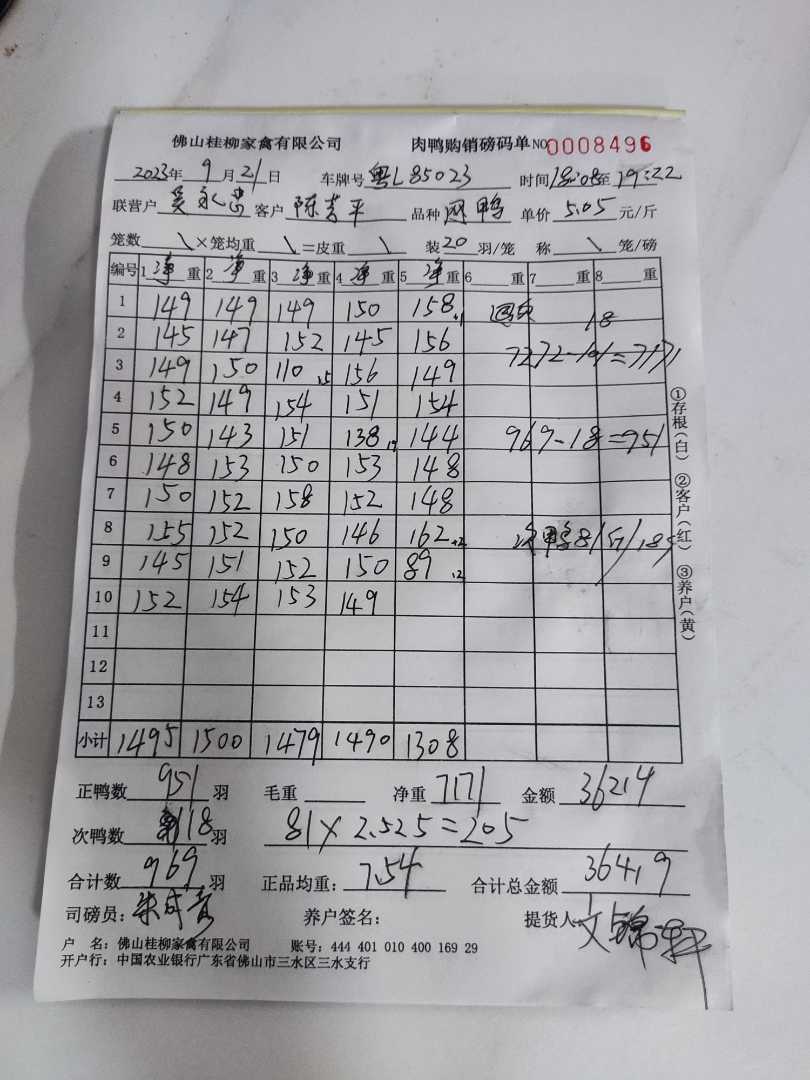 佛山桂柳家禽有限公司 肉鸭购销磅码单 NO 0008496
2023年 9月 21日 车牌号 粤L85023 时间 18:08至 19:22
联营户 吴 客户 陈 平 品种 网鸭 单价 5.05 元/斤
笼数 \ ×笼均重 \ =皮重 \ 装 20 羽/笼 称 \ 笼/磅
编号 1 净 重 2 净 重 3 净 重 4 净 重 5 净 重 6 重 7 重 8 重
1 149 149 149 150 158 +1 18
2 145 147 152 145 156 7272-101=7171
3 149 150 110 15 156 149
4 152 149 154 151 154
5 150 143 151 138 144 969-18=951
6 148 153 150 153 148
7 150 152 158 152 148
8 155 152 150 146 162 +2 次鸭81斤/18
9 145 151 152 150 89 12
10 152 154 153 149
11
12
13
小计 1495 1500 1479 1490 1308
①存根(白) ②客户(红) ③养户(黄)
正鸭数 951 羽 毛重 净重 7171 金额 36214
次鸭数 18 羽 81×2.525=205
合计数 969 羽 正品均重: 7.54 合计总金额 36419
司磅员: 养户签名: 提货人: 文锦
户 名: 佛山桂柳家禽有限公司 账号: 444 401 010 400 169 29
开户行: 中国农业银行广东省佛山市三水区三水支行